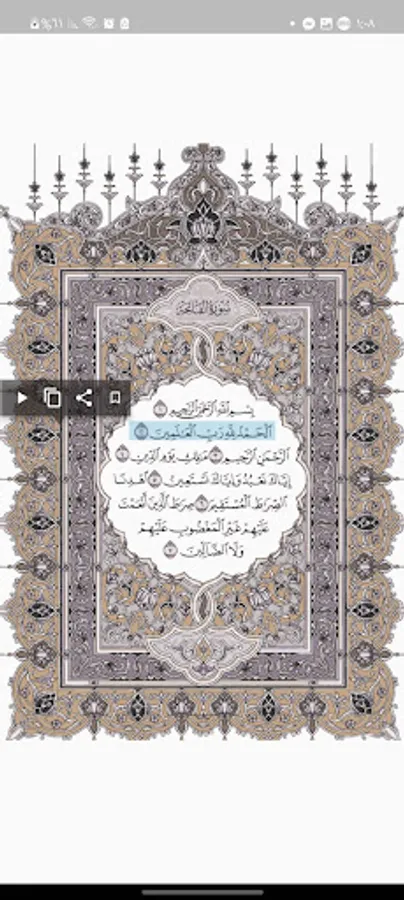 ٪٦١
١:٠٨
سورة الفاتحة
بِسْمِ ٱللَّهِ ٱلرَّحْمَٰنِ ٱلرَّحِيمِ ١
ٱلْحَمْدُ لِلَّهِ رَبِّ ٱلْعَٰلَمِينَ ٢
ٱلرَّحْمَٰنِ ٱلرَّحِيمِ ٣ مَٰلِكِ يَوْمِ ٱلدِّينِ ٤
إِيَّاكَ نَعْبُدُ وَإِيَّاكَ نَسْتَعِينُ ٥ ٱهْدِنَا
ٱلصِّرَٰطَ ٱلْمُسْتَقِيمَ ٦ صِرَٰطَ ٱلَّذِينَ أَنْعَمْتَ
عَلَيْهِمْ غَيْرِ ٱلْمَغْضُوبِ عَلَيْهِمْ
وَلَا ٱلضَّآلِّينَ ٧